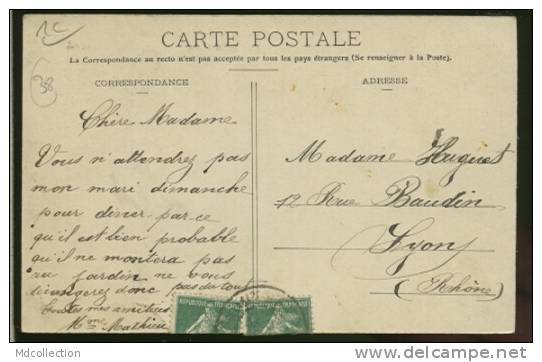 CARTE POSTALE
La Correspondance au recto n'est pas acceptée par tous les pays étrangers (Se renseigner à la Poste).
CORRESPONDANCE
ADRESSE
38
Chère Madame
Vous n'attendrez pas
mon mari dimanche
pour dîner par-ce
qu'il est bien probable
qu'il ne montera pas
au jardin ne vous
dérangerez donc pas du tout
toutes mes amitiées
Mme Mathieu
Madame Huguet
12 Rue Baudin
Lyon
(Rhône)
Mdcollection
www.delcampe.net